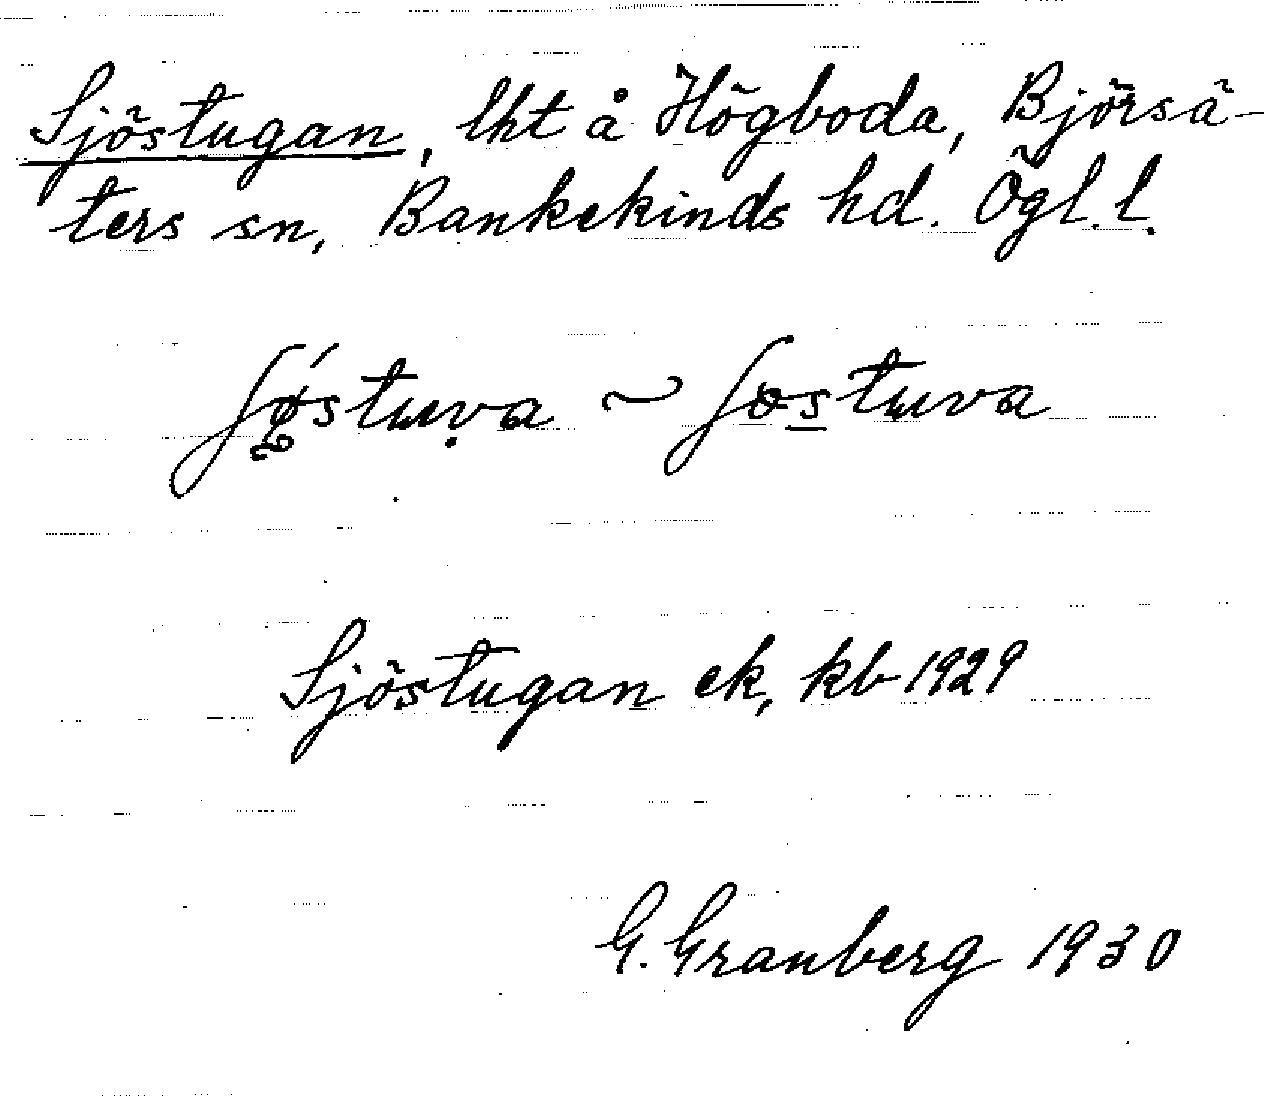 Sjöstugan, lht å Högboda, Björsä-
ters sn, Bankekinds hd. Ögl. l.
ʃǿstuvа ~ ʃøs̲tuva
Sjöstugan ek, kb 1929
G. Granberg 1930